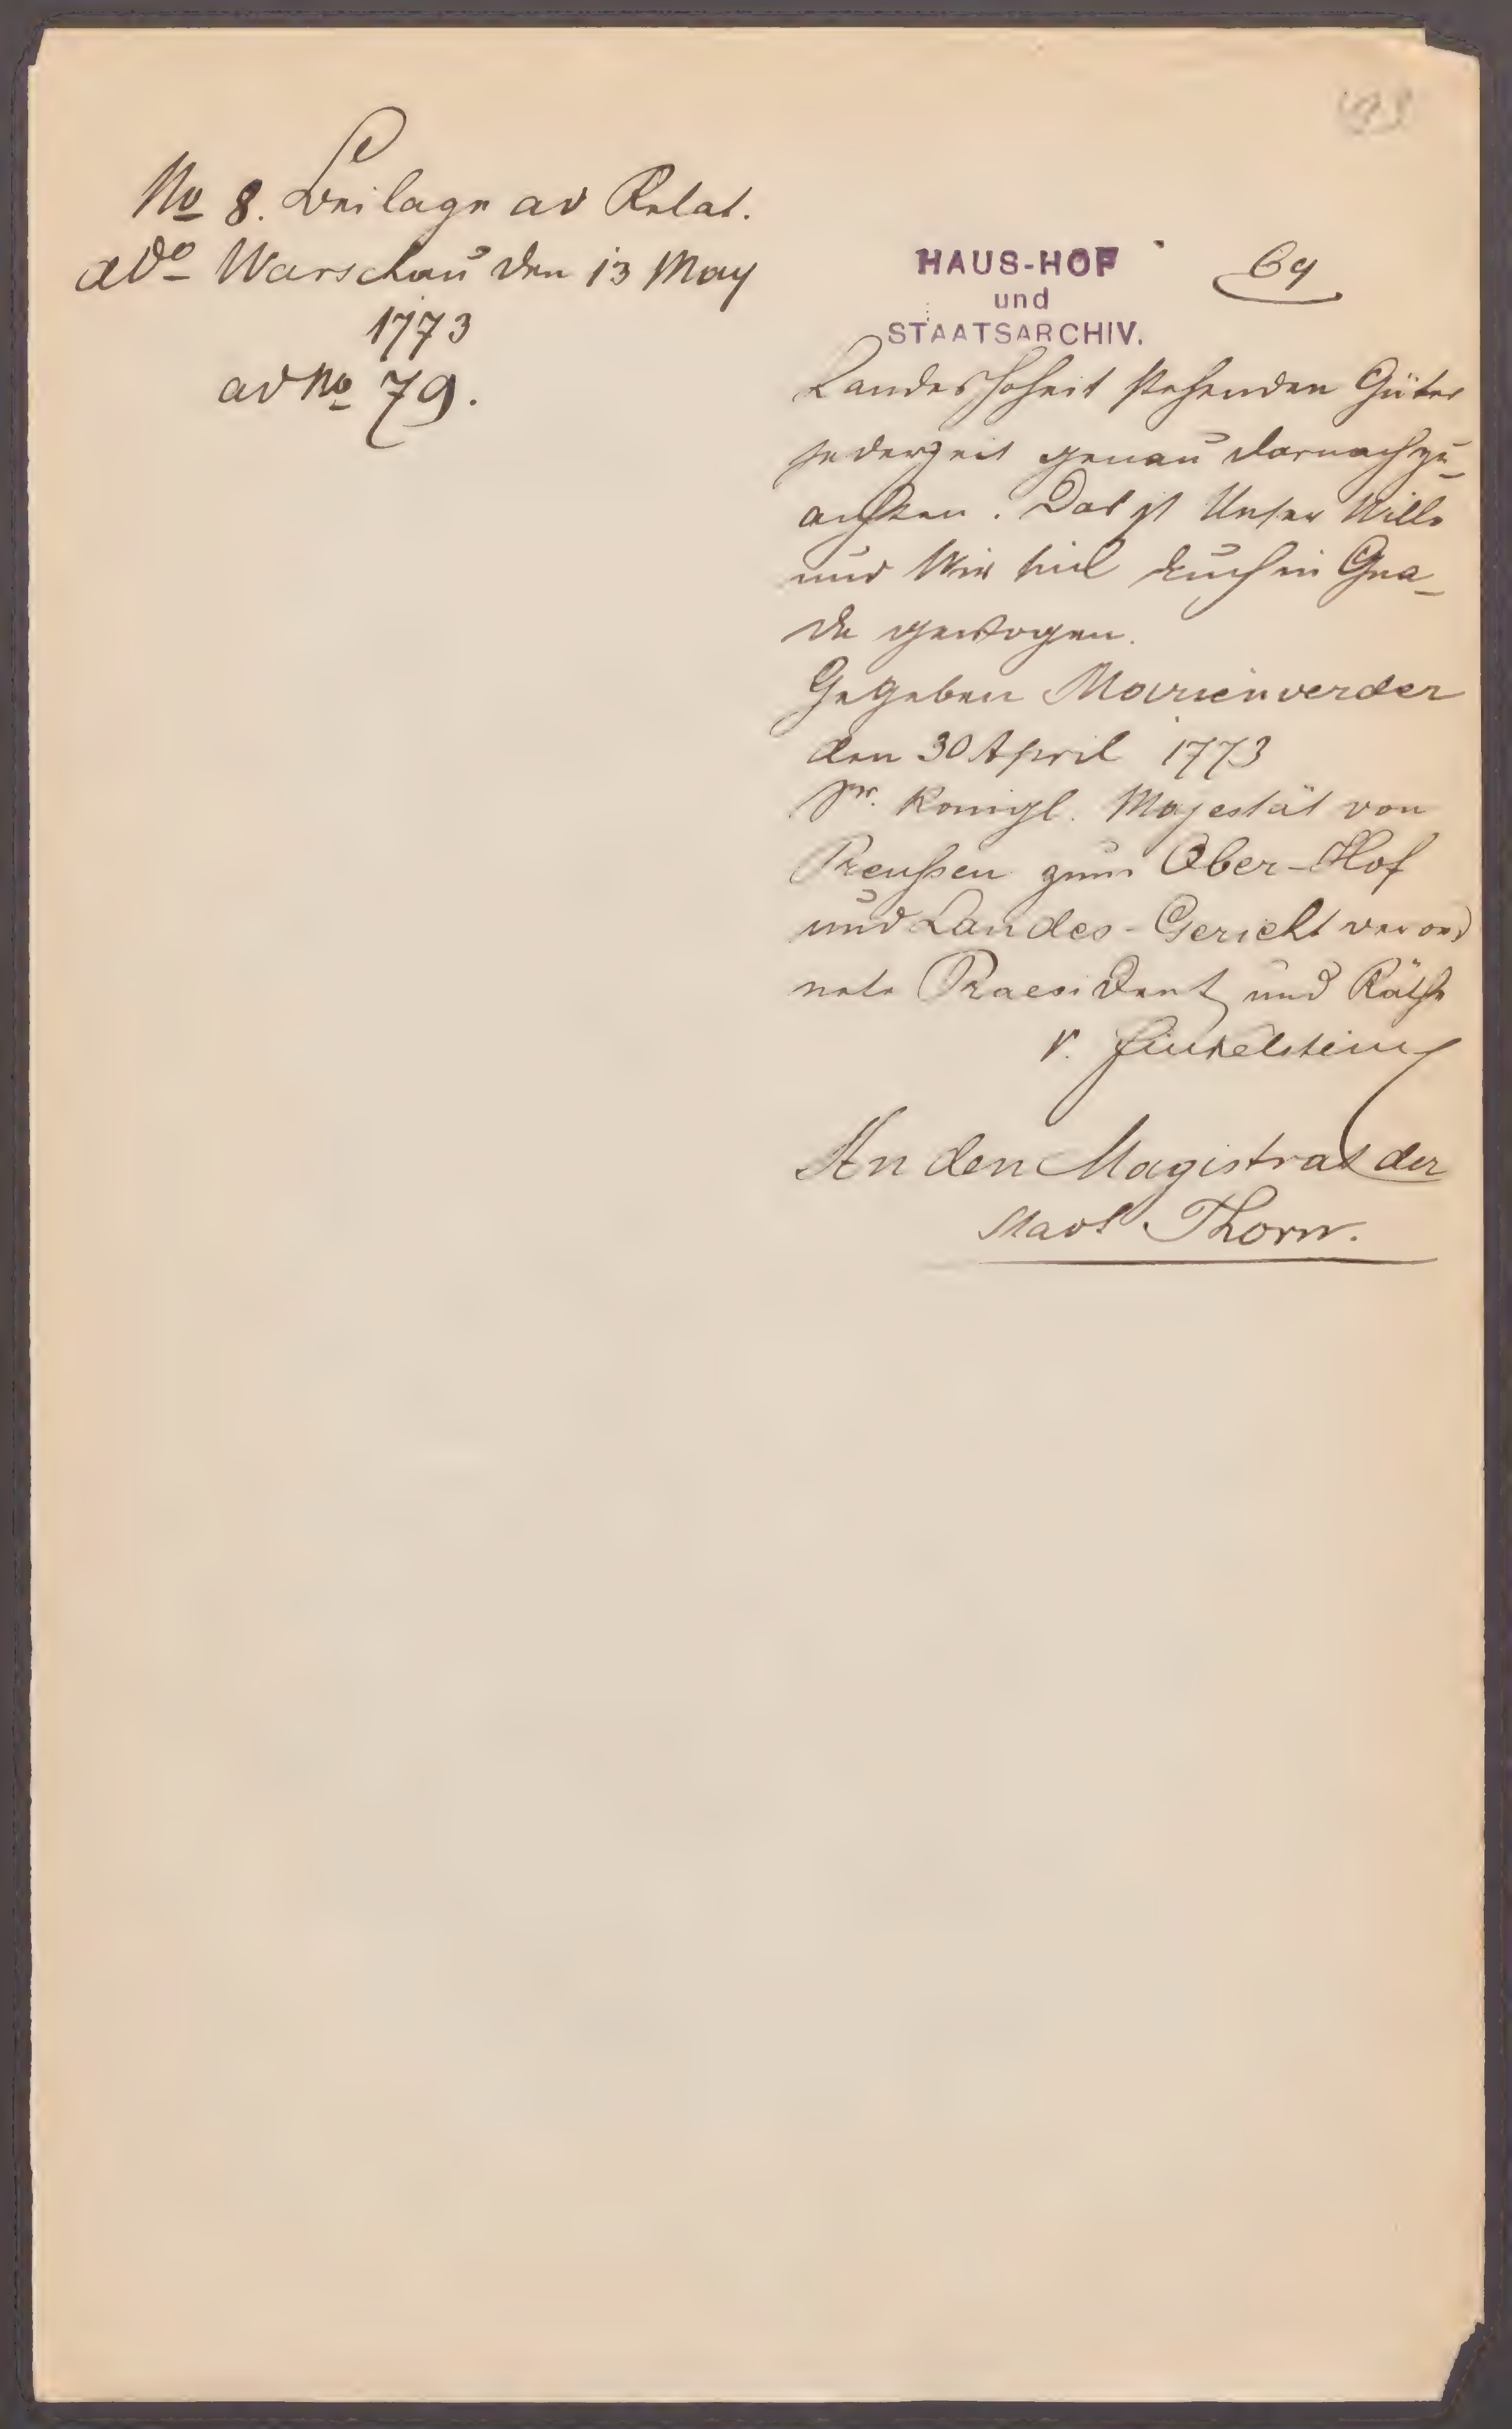 No 8. Beilage ad Relat.
ddo Warschau den 13 May
1773
ad No 79.
HAUS-HOF
und
STAATSARCHIV.
69
Landeshoheit stehenden Güter
jederzeit genau darnach zu
achten. Das ist Unser Wille
und Wir sind Euch in Gna-
de gewogen.
Gegeben Marienverder
den 30 April 1773
Sr. Königl. Majestät von
Preußen zum Ober-Hof
und Landes-Gericht verord
nete Praesident und Räthe
v. Finkelstein
An den Magistrat der
Stadt Thorn.